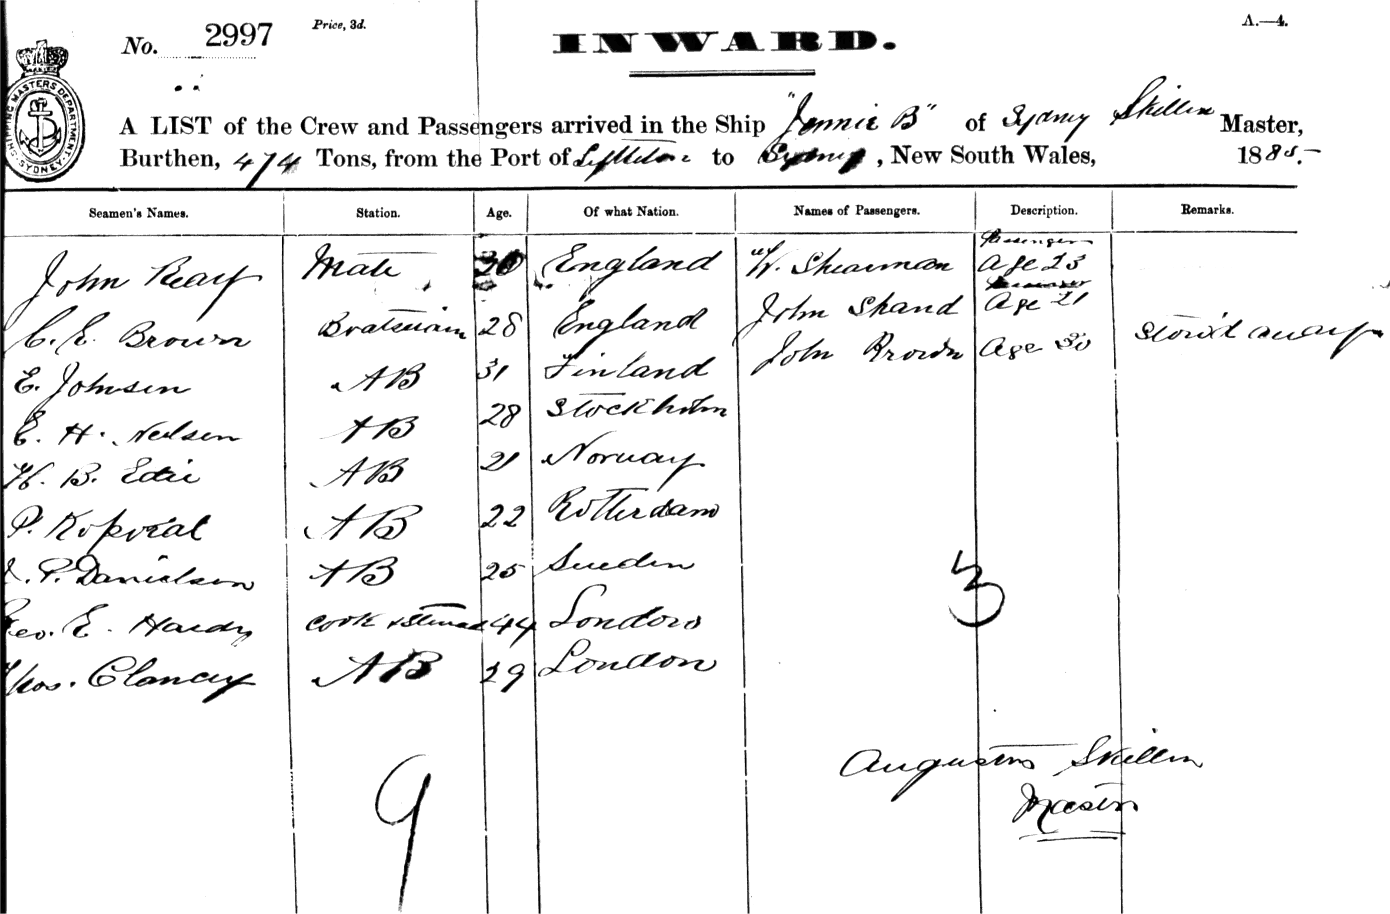 No. 2997
Price, 3d.
INWARD.
A.—4.
SHIPPING MASTERS DEPARTMENT SYDNEY
A LIST of the Crew and Passengers arrived in the Ship "Jennie B" of Sydney Skillin Master,
Burthen, 474 Tons, from the Port of to Sydney, New South Wales, 1885.
Seamen's Names. Station. Age. Of what Nation. Names of Passengers. Description. Remarks.
Passenger
John Reay Mate England W. Shearman Age 23
Passenger
C. E. Brown Boatswain 28 England John Shand Age 21
E. Johnsen AB 31 Finland John Brown Age 30 Stow'd away
E. H. Neilsen AB 28 Stockholm
W. B. Edie AB 21 Norway
P. Koporal AB 22 Rotterdam
P. Danielson AB 25 Sweden
Geo. E. Hardy Cook & Steward 44 London
Thos. Clancy AB 29 London
3
9
Augustus Skillin
Master